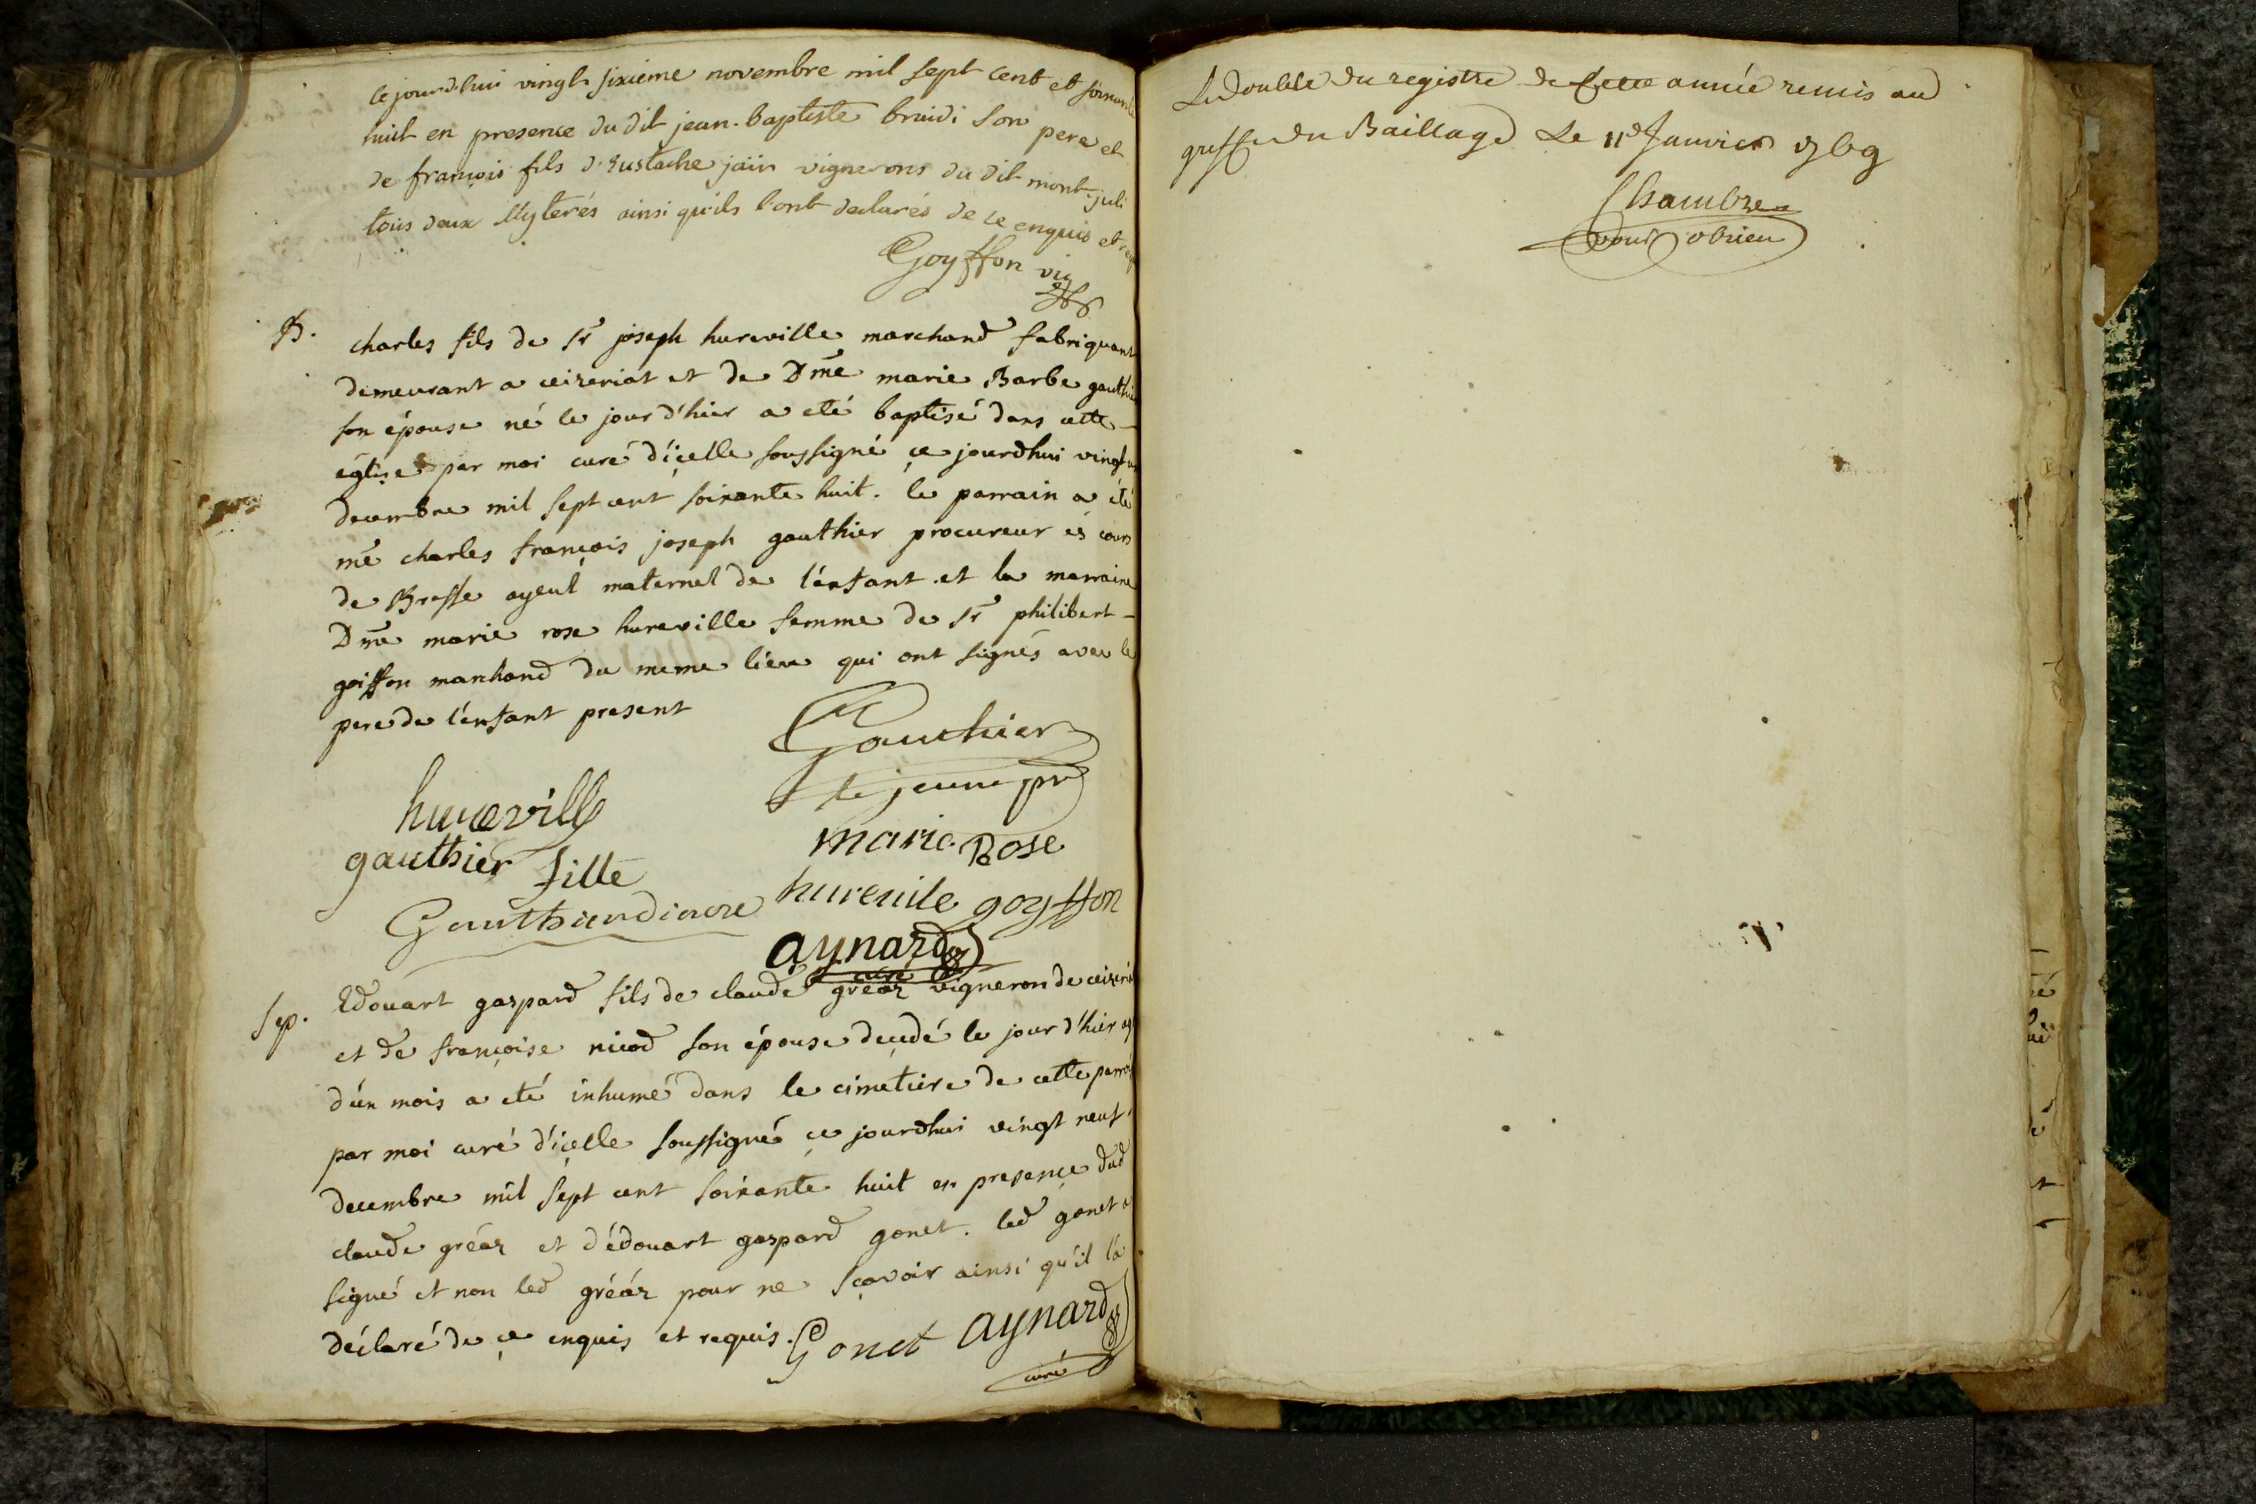 ce jourd'hui vingt sixieme novembre mil sept cent et soixante
huit en presence du dit jean-baptiste bruidi son pere et
de françois fils d'Eustache jain vignerons du dit mont-juli
tous deux illyterés ainsi qu'ils l'ont declarés de ce enquis et
Goyffon vic
B. charles fils de Sr joseph hureville marchand fabriquant
demeurant a ceizeriat et de Dme marie Barbe gauthier
son épouse né le jour d'hier a eté baptisé dans cette
église par moi curé d'içelle soussigné çe jourdhui vingt
decembre mil sept cent soixante huit. le parrain a été
me charles françois joseph gauthier procureur és cours
de Bresse ayeul maternel de l'enfant et la marraine
Dme marie rose hureville femme de Sr philibert
goiffon marchand du meme lieu qui ont signés avec le
pere de l'enfant present
Gauthier
le jeune pr
hureville
marie Rose
gauthier fille
hurevile goyffon
Gauthier diacre
aynard
curé
Sep. Edouart gaspard fils de claude gréaz vigneron de ceizeria
et de françoise nicod son épouse decedé le jour d'hier agé
d'un mois a eté inhumé dans le cimetiere de cette parrois
par moi curé d'içelle soussigné çe jourdhui vingt neuf
decembre mil sept cent soixante huit en presençe dud
claude gréaz et d'édouart gaspard gonet. led gonet a
signé et non led gréáz pour ne sçavoir ainsi qu'il l'a
déclaré de çe enquis et requis. Gonet aynard
curé
Le double du registre de Cette année remis au
greffe du Baillage Le 11e Janvier 1769
Chambre
pour obrieu